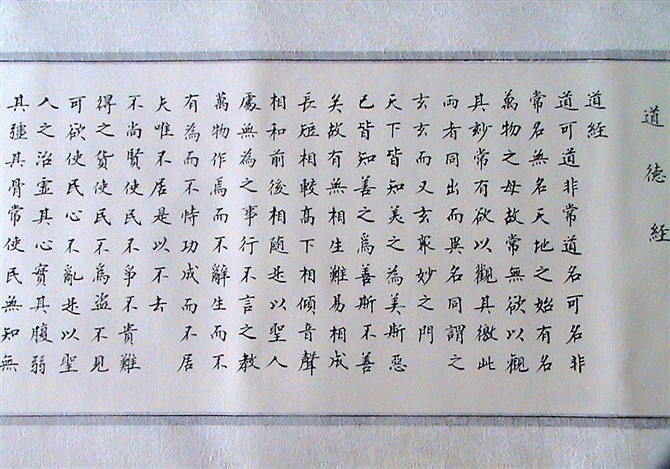 道德經
道經
道可道非常道名可名非
常名無名天地之始有名
萬物之母故常無欲以觀
其妙常有欲以觀其徼此
兩者同出而異名同謂之
玄玄而又玄衆妙之門
天下皆知美之為美斯惡
已皆知善之爲善斯不善
矣故有無相生難易相成
長短相較髙下相傾音聲
相和前後相随是以聖人
處無為之事行不言之教
萬物作焉而不辭生而不
有為而不恃功成而不居
夫唯不居是以不去
不尚賢使民不爭不貴難
得之貨使民不爲盜不見
可欲使民心不亂是以聖
人之治虛其心實其腹弱
其彊其骨常使民無知無